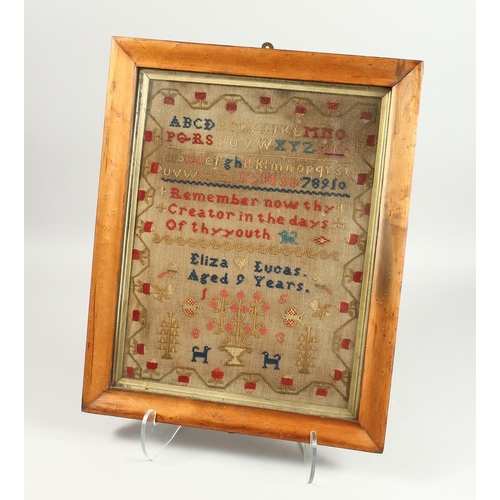 ABCD MNO
PQRS TUVW XYZ
gh klmnopqrs
uvw 78910
Remember now thy
Creator in the days
Of thy youth
Eliza Lucas.
Aged 9 Years.